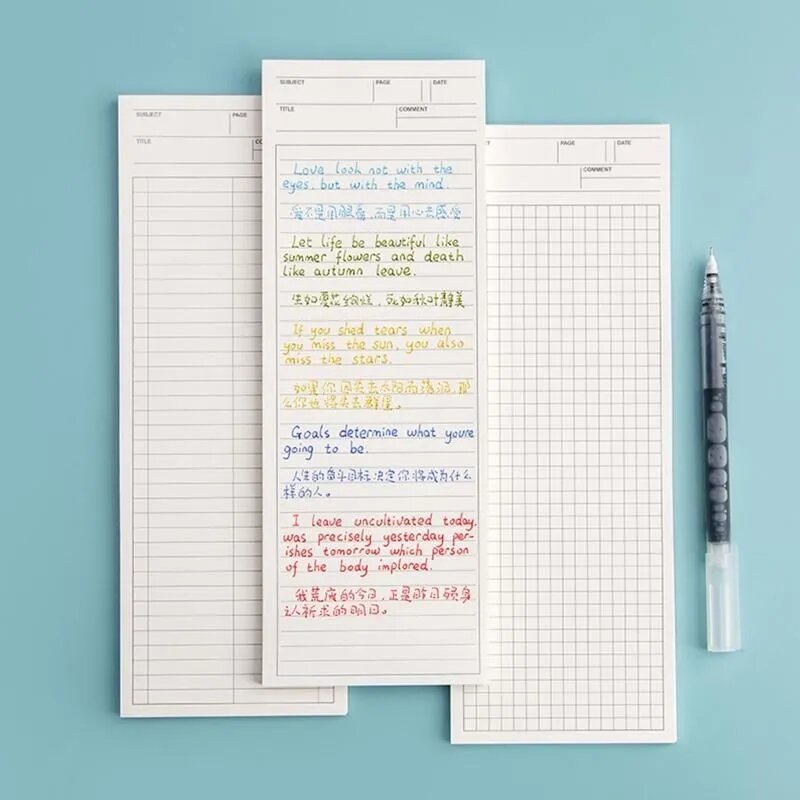 SUBJECT PAGE
TITLE CO
SUBJECT PAGE DATE
TITLE COMMENT
Love look not with the
eyes, but with the mind.
爱不是用眼看,而是用心去感受
Let life be beautiful like
summer flowers and death
like autumn leave.
生如夏花绚烂,死如秋叶静美
If you shed tears when
you miss the sun, you also
miss the stars.
如果你因失去太阳而落泪,那
么你也将失去群星。
Goals determine what you're
going to be.
人生的奋斗目标决定你将成为什么
样的人。
I leave uncultivated today,
was precisely yesterday per-
ishes tomorrow which person
of the body implored.
我荒废的今日,正是昨日殒身
之人祈求的明日。
PAGE DATE
COMMENT